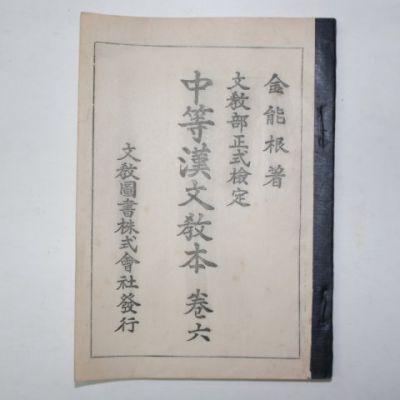 金能根著
文教部正式檢定
中等漢文敎本 卷六
文敎圖書株式會社發行